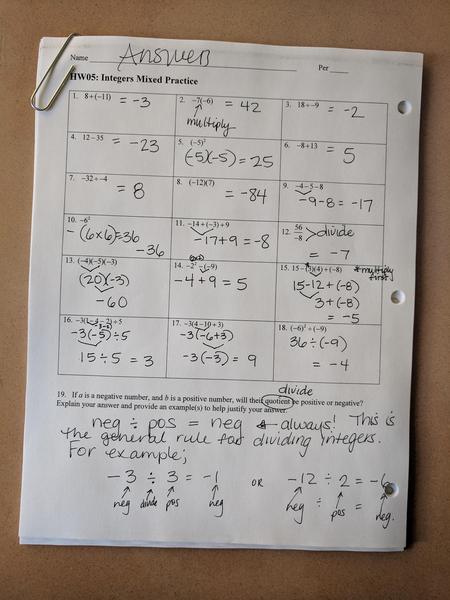 Name Answers Per
HW05: Integers Mixed Practice
1. 8+(−11) = -3
2. −7(−6) = 42
multiply
3. 18÷−9 = -2
4. 12−35 = -23
5. (−5)²
(-5)(-5) = 25
6. −8+13 = 5
7. −32÷−4 = 8
8. (−12)(7) = -84
9. −4−5−8
-9-8 = -17
10. −6²
-(6x6)=36
-36
11. −14+(−3)+9
-17+9 = -8
12. 56/−8 >divide
= -7
13. (−4)(−5)(−3)
(20)(-3)
-60
14. −2²−(−9)
-4+9 = 5
15. 15−(3)(4)+(−8) *multiply first!
15-12+(-8)
3+(-8)
= -5
16. −3(1−4−2)÷5
-3(-5)÷5
15÷5 = 3
17. −3(4−10+3)
-3(-6+3)
-3(-3) = 9
18. (−6)²÷(−9)
36÷(-9)
= -4
divide
19. If a is a negative number, and b is a positive number, will their quotient be positive or negative?
Explain your answer and provide an example(s) to help justify your answer.
neg ÷ pos = neg always! This is
the general rule for dividing integers.
For example;
-3 ÷ 3 = -1 OR -12 ÷ 2 = -6
neg divide pos neg neg ÷ pos = neg.